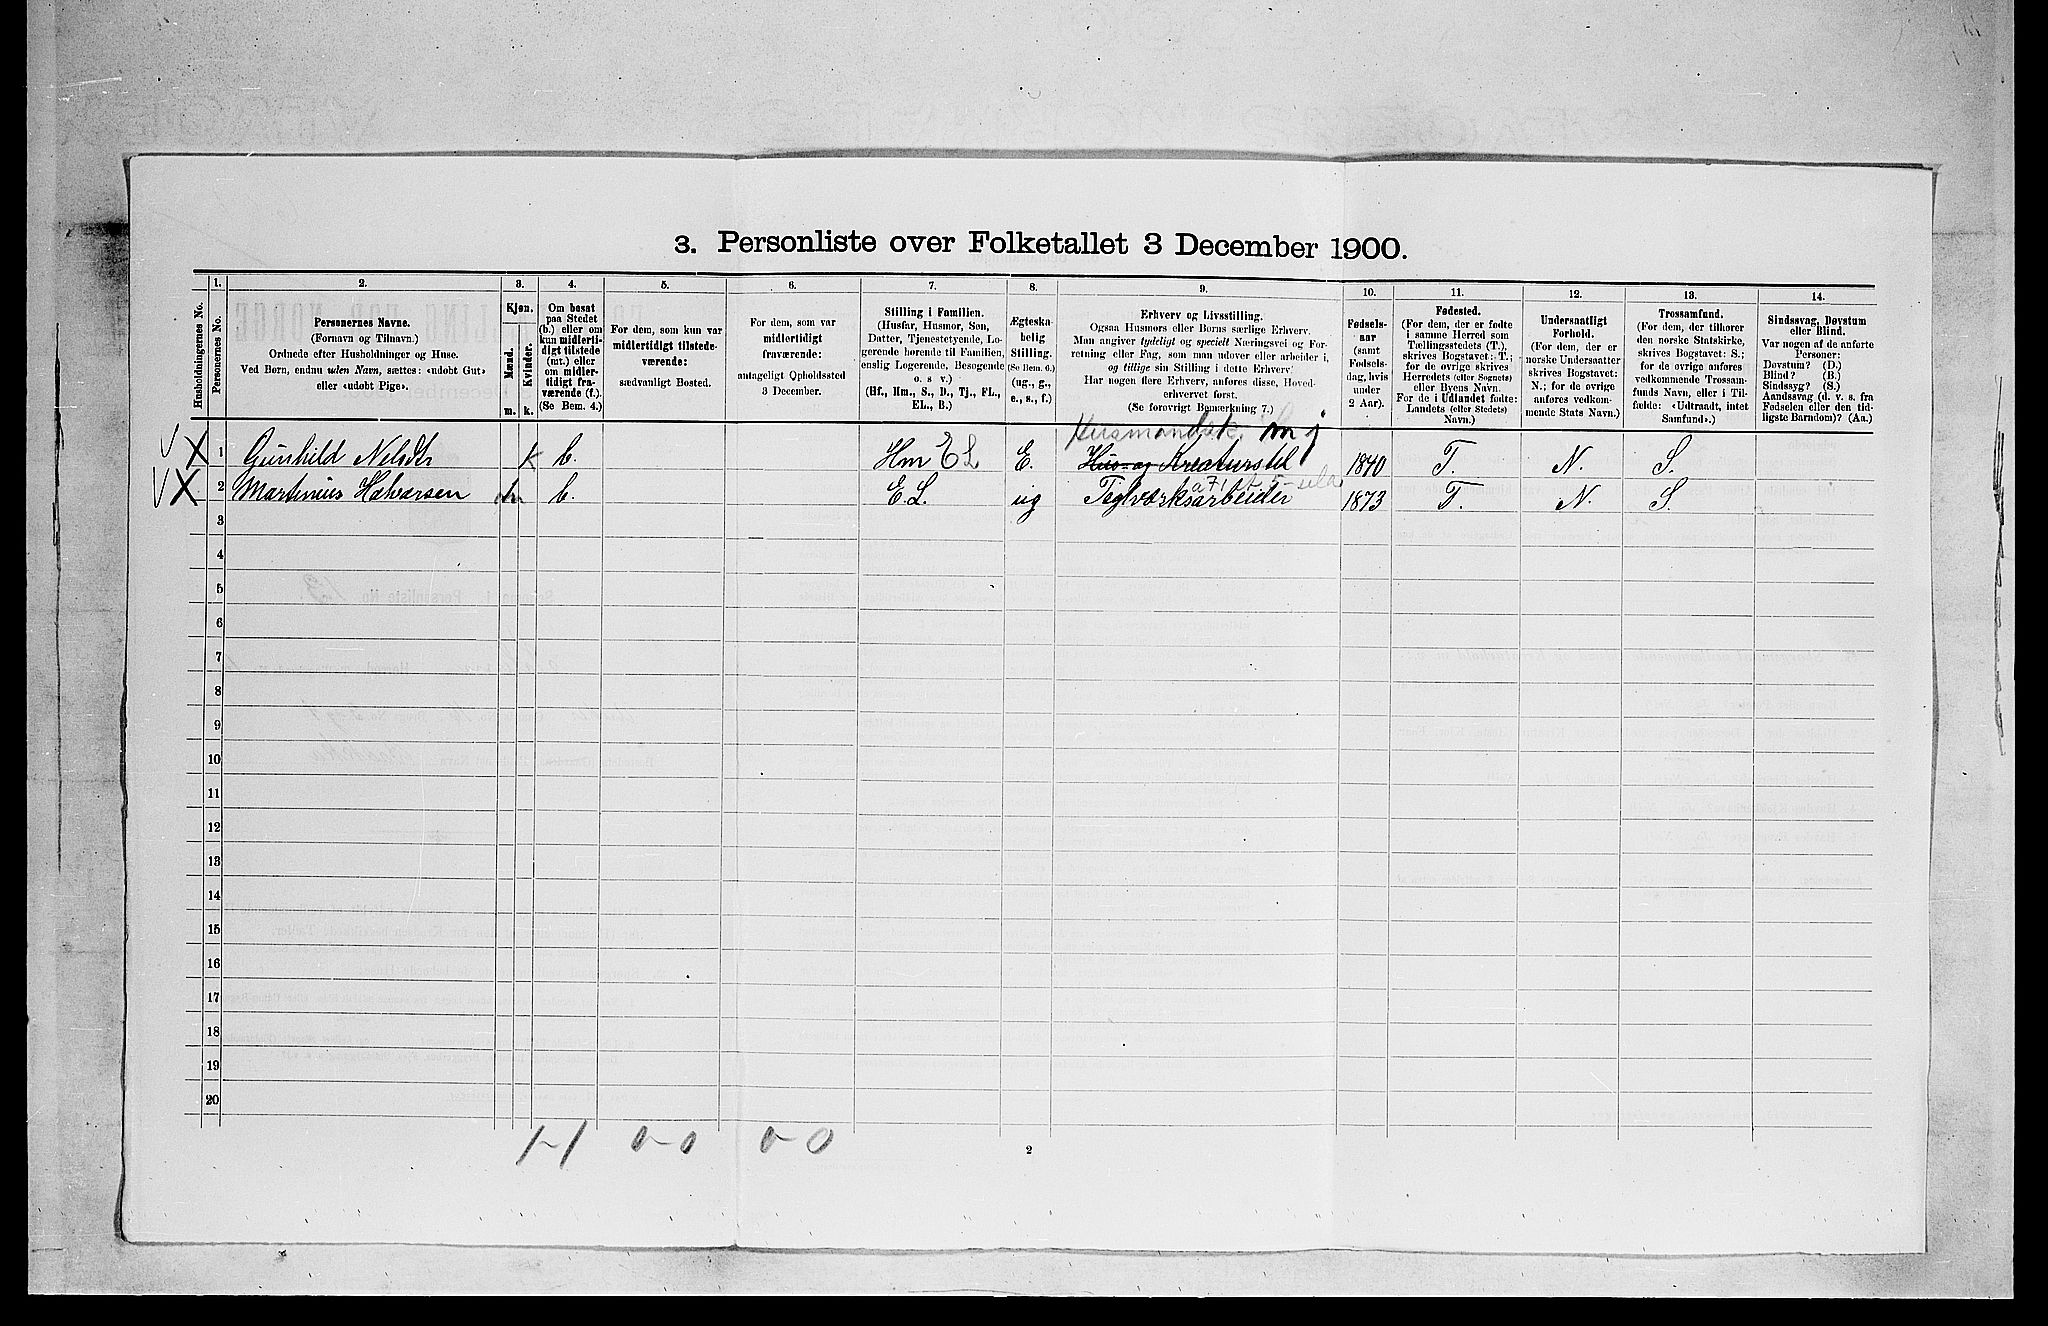 3. Personliste over Folketallet 3 December 1900.
1. 2. 3. 4. 5. 6. 7. 8. 9. 10. 11. 12. 13. 14.
Husholdningernes No.
Personernes No.
Personernes Navne.
(Fornavn og Tilnavn.)
Ordnede efter Husholdninger og Huse.
Ved Børn, endnu uden Navn, sættes: «udøbt Gut»
eller «udøbt Pige».
Kjøn.
Mænd.
Kvinder.
m. k.
Om bosat
paa Stedet
(b.) eller om
kun midlerti-
digt tilstede
(mt.) eller
om midler-
tidigt fra-
værende (f.).
(Se Bem. 4.)
For dem, som kun var
midlertidigt tilstede-
værende:
sædvanligt Bosted.
For dem, som var
midlertidigt
fraværende:
antageligt Opholdssted
3 December.
Stilling i Familien.
(Husfar, Husmor, Søn,
Datter, Tjenestetyende, Lo-
gerende hørende til Familien,
enslig Logerende, Besøgende
o. s v.)
(Hf., Hm., S., D., Tj., FL.,
EL., B.)
Ægteska-
belig
Stilling.
(Se Bem. 6.)
(ug., g.,
e., s., f.)
Erhverv og Livsstilling.
Ogsaa Husmors eller Børns særlige Erhverv.
Man angiver tydeligt og specielt Næringsvei og For-
retning eller Fag, som man udøver eller arbeider i,
og tillige sin Stilling i dette Erhverv.
Har nogen flere Erhverv, anføres disse, Hoved-
erhvervet først.
(Se forøvrigt Bemerkning 7.)
Fødsels-
aar
(samt
Fødsels-
dag, hvis
under
2 Aar).
Fødested.
(For dem, der er fødte
i samme Herred som
Tællingsstedets (T.),
skrives Bogstavet: T.;
for de øvrige skrives
Herredets (eller Sognets)
eller Byens Navn.
For de i Udlandet fødte:
Landets (eller Stedets)
Navn.)
Undersaatligt
Forhold.
(For dem, der er
norske Undersaatter
skrives Bogstavet:
N.; for de øvrige
anføres vedkom-
mende Stats Navn.)
Trossamfund.
(For dem, der tilhører
den norske Statskirke,
skrives Bogstavet: S.;
for de øvrige anføres
vedkommende Trossam-
funds Navn, eller i Til-
fælde: «Udtraadt, intet
Samfund».)
Sindssvag, Døvstum
eller Blind.
Var nogen af de anførte
Personer:
Døvstum? (D.)
Blind? (B.)
Sindssyg? (S.)
Aandssvag (d. v. s. fra
Fødselen eller den tid-
ligste Barndom)? (Aa.)
V X 1 Gunhild Nelsdtr k b. Hm EL E. Hus og Kreaturstel 1840 T. N. S.
V X 2 Martinius Halvarsen m b. E L. ug Teglværksarbeider 1873 T. N. S.
3
4
5
6
7
8
9
10
11
12
13
14
15
16
17
18
19
20
1-1 0-0 0-0
2